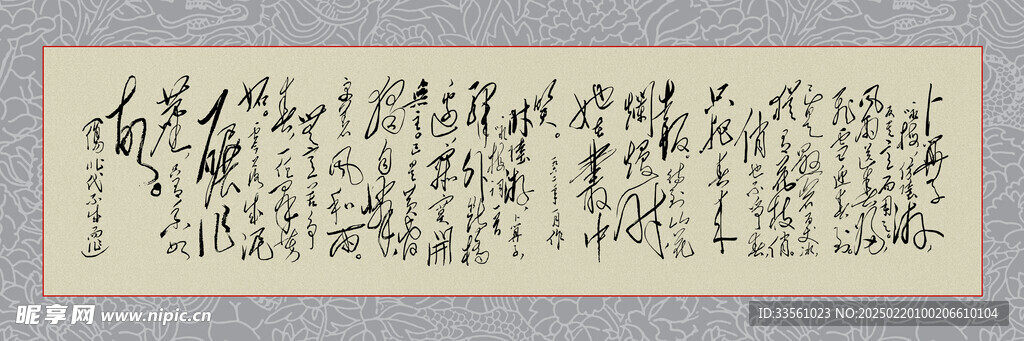 卜算子
反其意而用之。
风雨送春归,
飞雪迎春到。
已是悬崖百丈冰
犹有花枝俏。
俏也不争春,
只把春来
报。待到山花
烂漫时
她在丛中
笑。
陆游
咏梅词一首
卜算子
驿外断桥
边寂寞开
無主已是黄昏
独自愁,
更著风和雨。
无意苦争
春一任群芳
妒。零落成泥
碾作
尘,只有香如
故。
昵享网 www.nipic.cn
ID:33561023 NO:20250220100206610104